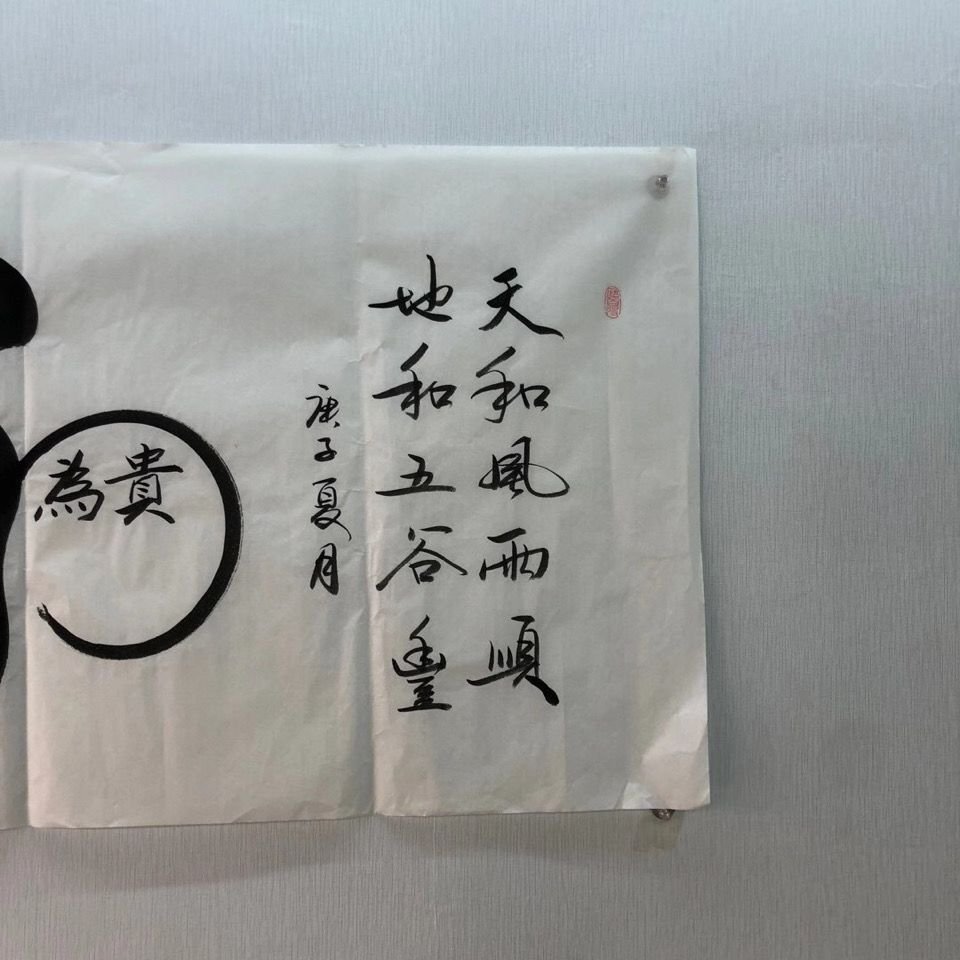 天和風雨順
地和五谷豐
庚子夏月
貴
為